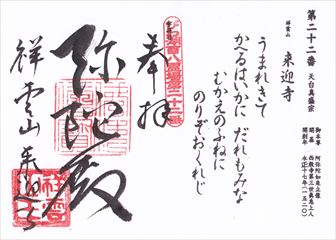 第二十二番 天台真盛宗
祥雲山
来迎寺
うまれきて
かへるはいかに だれもみな
むかえのふねに
のりぞおくれじ
御本尊 阿弥陀如来立像
開基 西教寺第三世真恵上人
開創年 永正十七年(一五二〇)
奉拝
弥陀殿
祥雲山 来迎寺